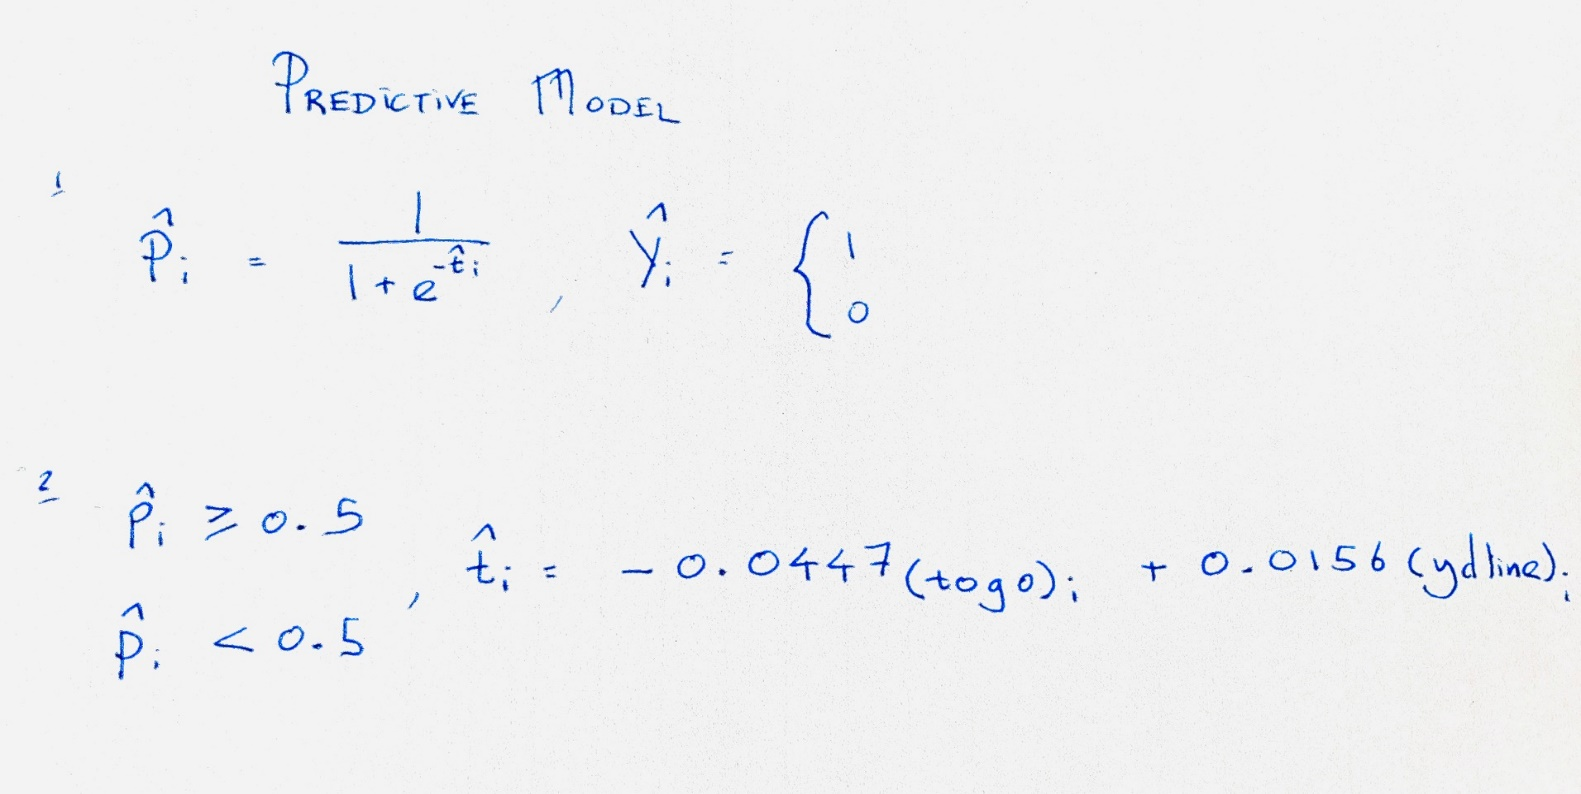 PREDICTIVE MODEL
1
p̂ᵢ = 1 / (1 + e^(-t̂ᵢ)) , ŷᵢ = { 1
0
2
p̂ᵢ ≥ 0.5
p̂ᵢ < 0.5 , t̂ᵢ = - 0.0447 (togo)ᵢ + 0.0156 (ydline)ᵢ